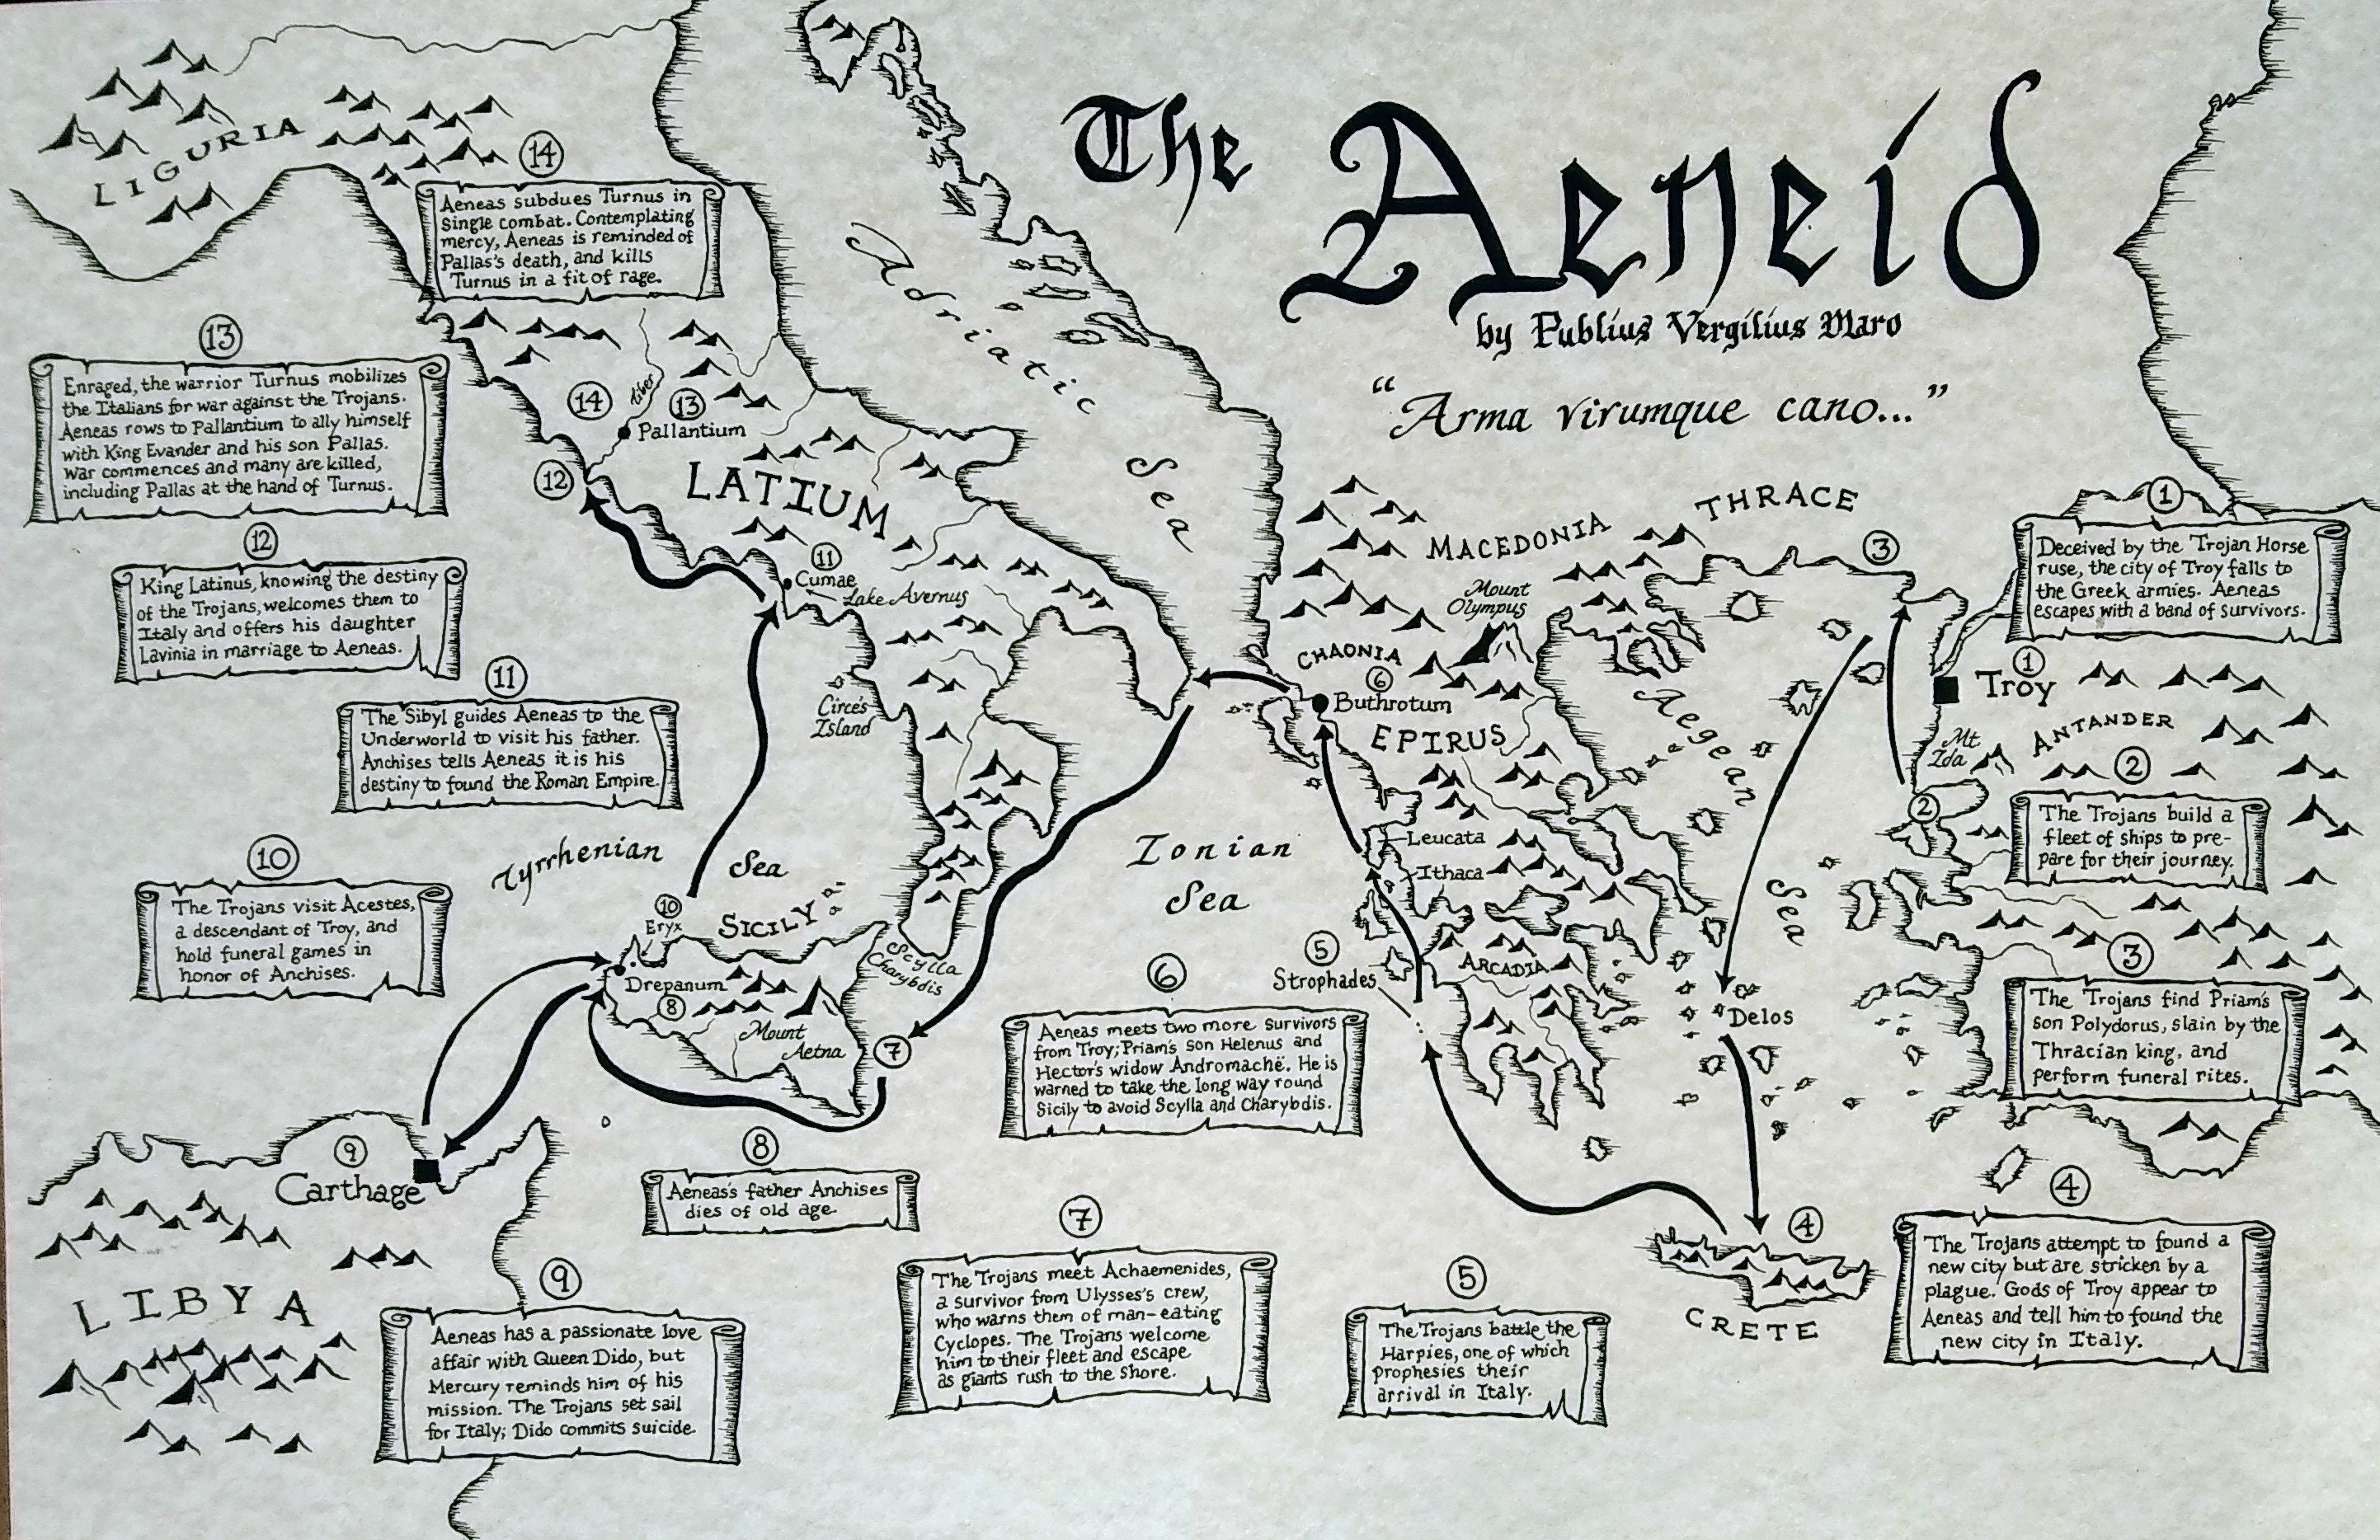 The Aeneid
by Publius Vergilius Maro
"Arma virumque cano..."
LIGURIA
14
Aeneas subdues Turnus in
single combat. Contemplating
mercy, Aeneas is reminded of
Pallas's death, and kills
Turnus in a fit of rage.
13
Enraged, the warrior Turnus mobilizes
the Italians for war against the Trojans.
Aeneas rows to Pallantium to ally himself
with King Evander and his son Pallas.
War commences and many are killed,
including Pallas at the hand of Turnus.
12
King Latinus, knowing the destiny
of the Trojans, welcomes them to
Italy and offers his daughter
Lavinia in marriage to Aeneas.
11
The Sibyl guides Aeneas to the
Underworld to visit his father.
Anchises tells Aeneas it is his
destiny to found the Roman Empire.
10
The Trojans visit Acestes,
a descendant of Troy, and
hold funeral games in
honor of Anchises.
14
Tiber
13
Pallantium
12
LATIUM
11
Cumae
Lake Avernus
Circe's
Island
Adriatic
Sea
Tyrrhenian
Sea
10
Eryx
SICILY
Scylla
Charybdis
Drepanum
8
Mount
Aetna
7
9
Carthage
LIBYA
8
Aeneas's father Anchises
dies of old age.
9
Aeneas has a passionate love
affair with Queen Dido, but
Mercury reminds him of his
mission. The Trojans set sail
for Italy; Dido commits suicide.
7
The Trojans meet Achaemenides,
a survivor from Ulysses's crew,
who warns them of man-eating
Cyclopes. The Trojans welcome
him to their fleet and escape
as giants rush to the shore.
6
Aeneas meets two more survivors
from Troy; Priam's son Helenus and
Hector's widow Andromachë. He is
warned to take the long way round
Sicily to avoid Scylla and Charybdis.
5
The Trojans battle the
Harpies, one of which
prophesies their
arrival in Italy.
Ionian
Sea
5
Strophades
MACEDONIA
THRACE
3
Mount
Olympus
CHAONIA
6
Buthrotum
EPIRUS
Leucata
Ithaca
ARCADIA
Aegean
Sea
Delos
4
CRETE
1
Deceived by the Trojan Horse
ruse, the city of Troy falls to
the Greek armies. Aeneas
escapes with a band of survivors.
1
Troy
ANTANDER
Mt
Ida
2
2
The Trojans build a
fleet of ships to pre-
pare for their journey.
3
The Trojans find Priam's
son Polydorus, slain by the
Thracian king, and
perform funeral rites.
4
The Trojans attempt to found a
new city but are stricken by a
plague. Gods of Troy appear to
Aeneas and tell him to found the
new city in Italy.